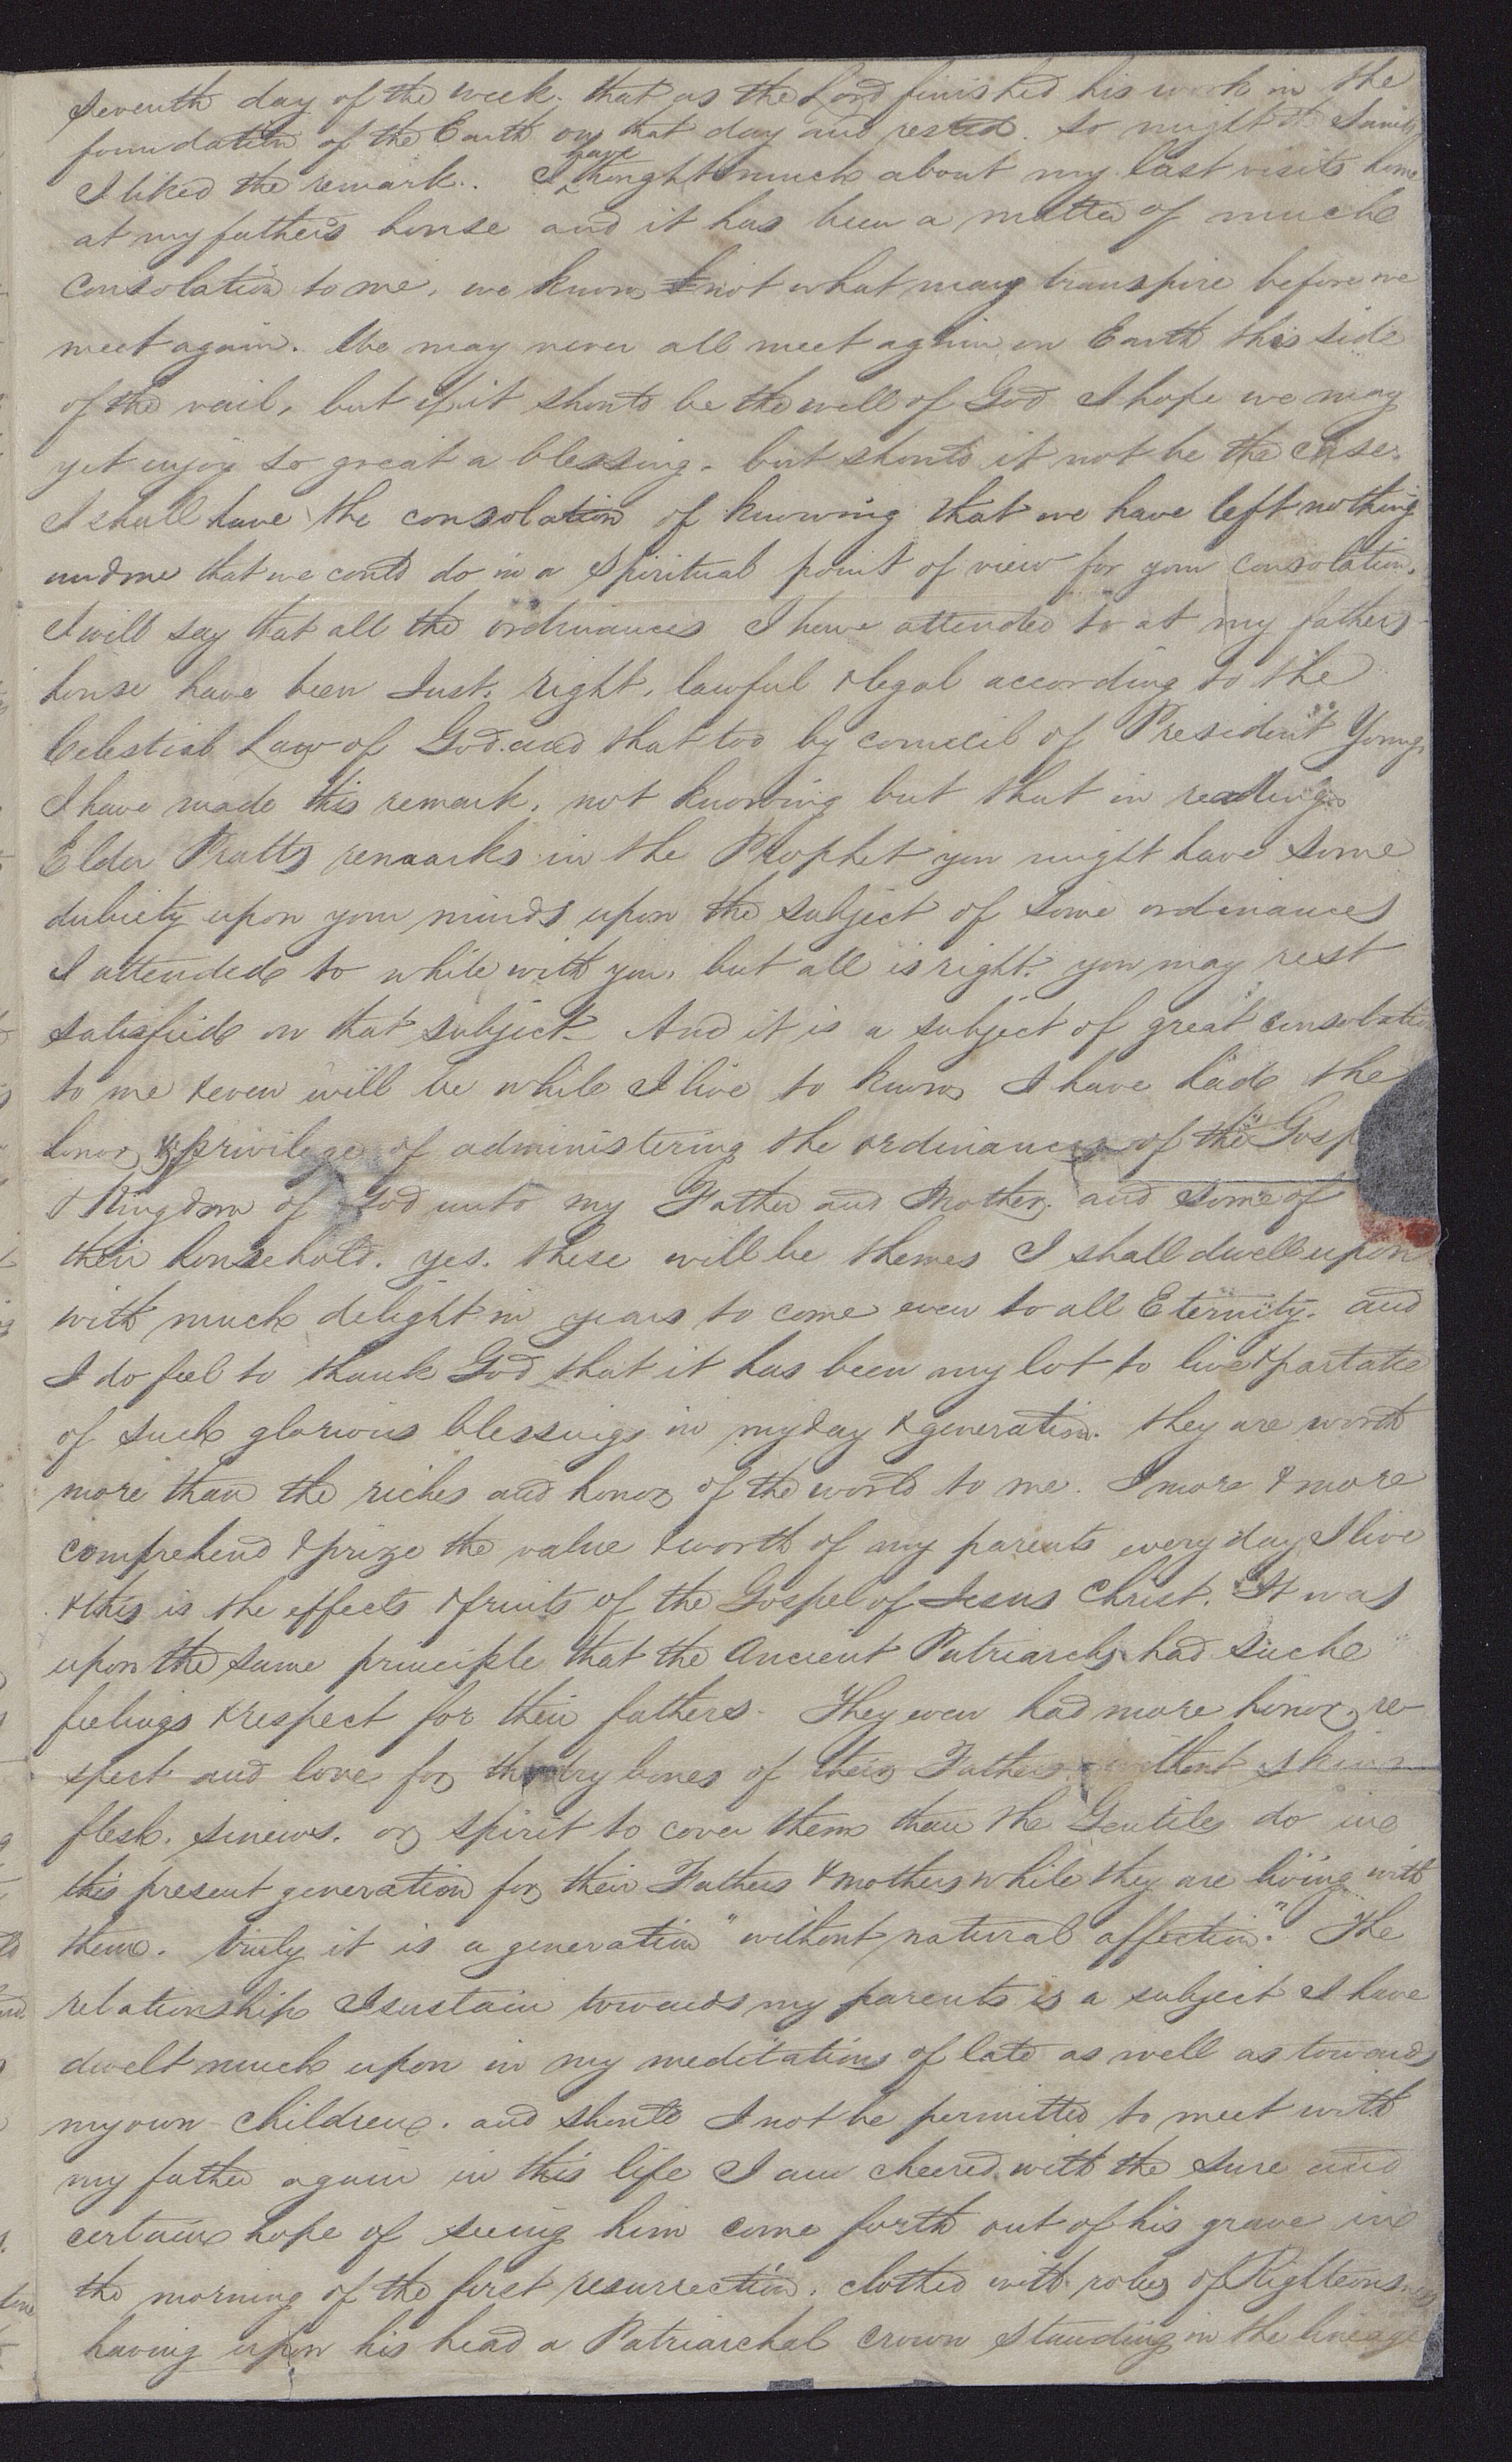 seventh day of the week. that as the Lord finished his work in the
foundation of the Earth on that day and rested. so might the Saints
I liked the remark. I have thought much about my last visits home
at my fathers house and it has been a matter of much
consolation to me. we know not what may transpire before we
meet again. We may never all meet again on Earth this side
of the vail, but if it should be the will of God I hope we may
yet enjoy so great a blessing. but should it not be the case.
I shall have the consolation of knowing that we have left nothing
undone that we could do in a spiritual point of view for your consolation.
I will say that all the ordinances I have attended to at my fathers
house have been Just, right, lawful & legal according to the
Celestial Law of God. and that too by council of President Young.
I have made this remark, not knowing but that in reading
Elder Pratts remaarks in the Prophet you might have some
dubiety upon your minds upon the subject of some ordinances
I attended to while with you, but all is right. you may rest
satisfied on that subject. And it is a subject of great consolatio
to me & ever will be while I live to know I have had the
honor & privilege of administering the ordinances of the Gosp
& Kingdom of God unto my Father and Mother. and some of
their household. yes. these will be themes I shall dwell upon
with much delight in years to come even to all Eternity. and
I do feel to thank God that it has been my lot to live & partake
of such glorious blessings in my day & generation. they are worth
more than the riches and honor of the world to me. I more & more
comprehend & prize the value & worth of my parents every day I live
& this is the effects & fruits of the Gospel of Jesus Christ. It was
upon the same principle that the Ancient Patriarchs had such
feelings & respect for their fathers. They even had more honor, re-
spect and love for the dry bones of their Fathers without skin
flesh. sinews. or spirit to cover them than the Gentiles do in
this present generation for their Fathers & mothers while they are living with
them. truly it is a generation "without natural affection." The
relationship I sustain towards my parents is a subject I have
dwelt much upon in my meditations of late as well as towards
my own children. and should I not be permitted to meet with
my father again in this life I am cheered with the sure and
certain hope of seeing him come forth out of his grave in
the morning of the first resurrection. clothed with robes of Righteousness
having upon his head a Patriarchal crown standing in the lineage